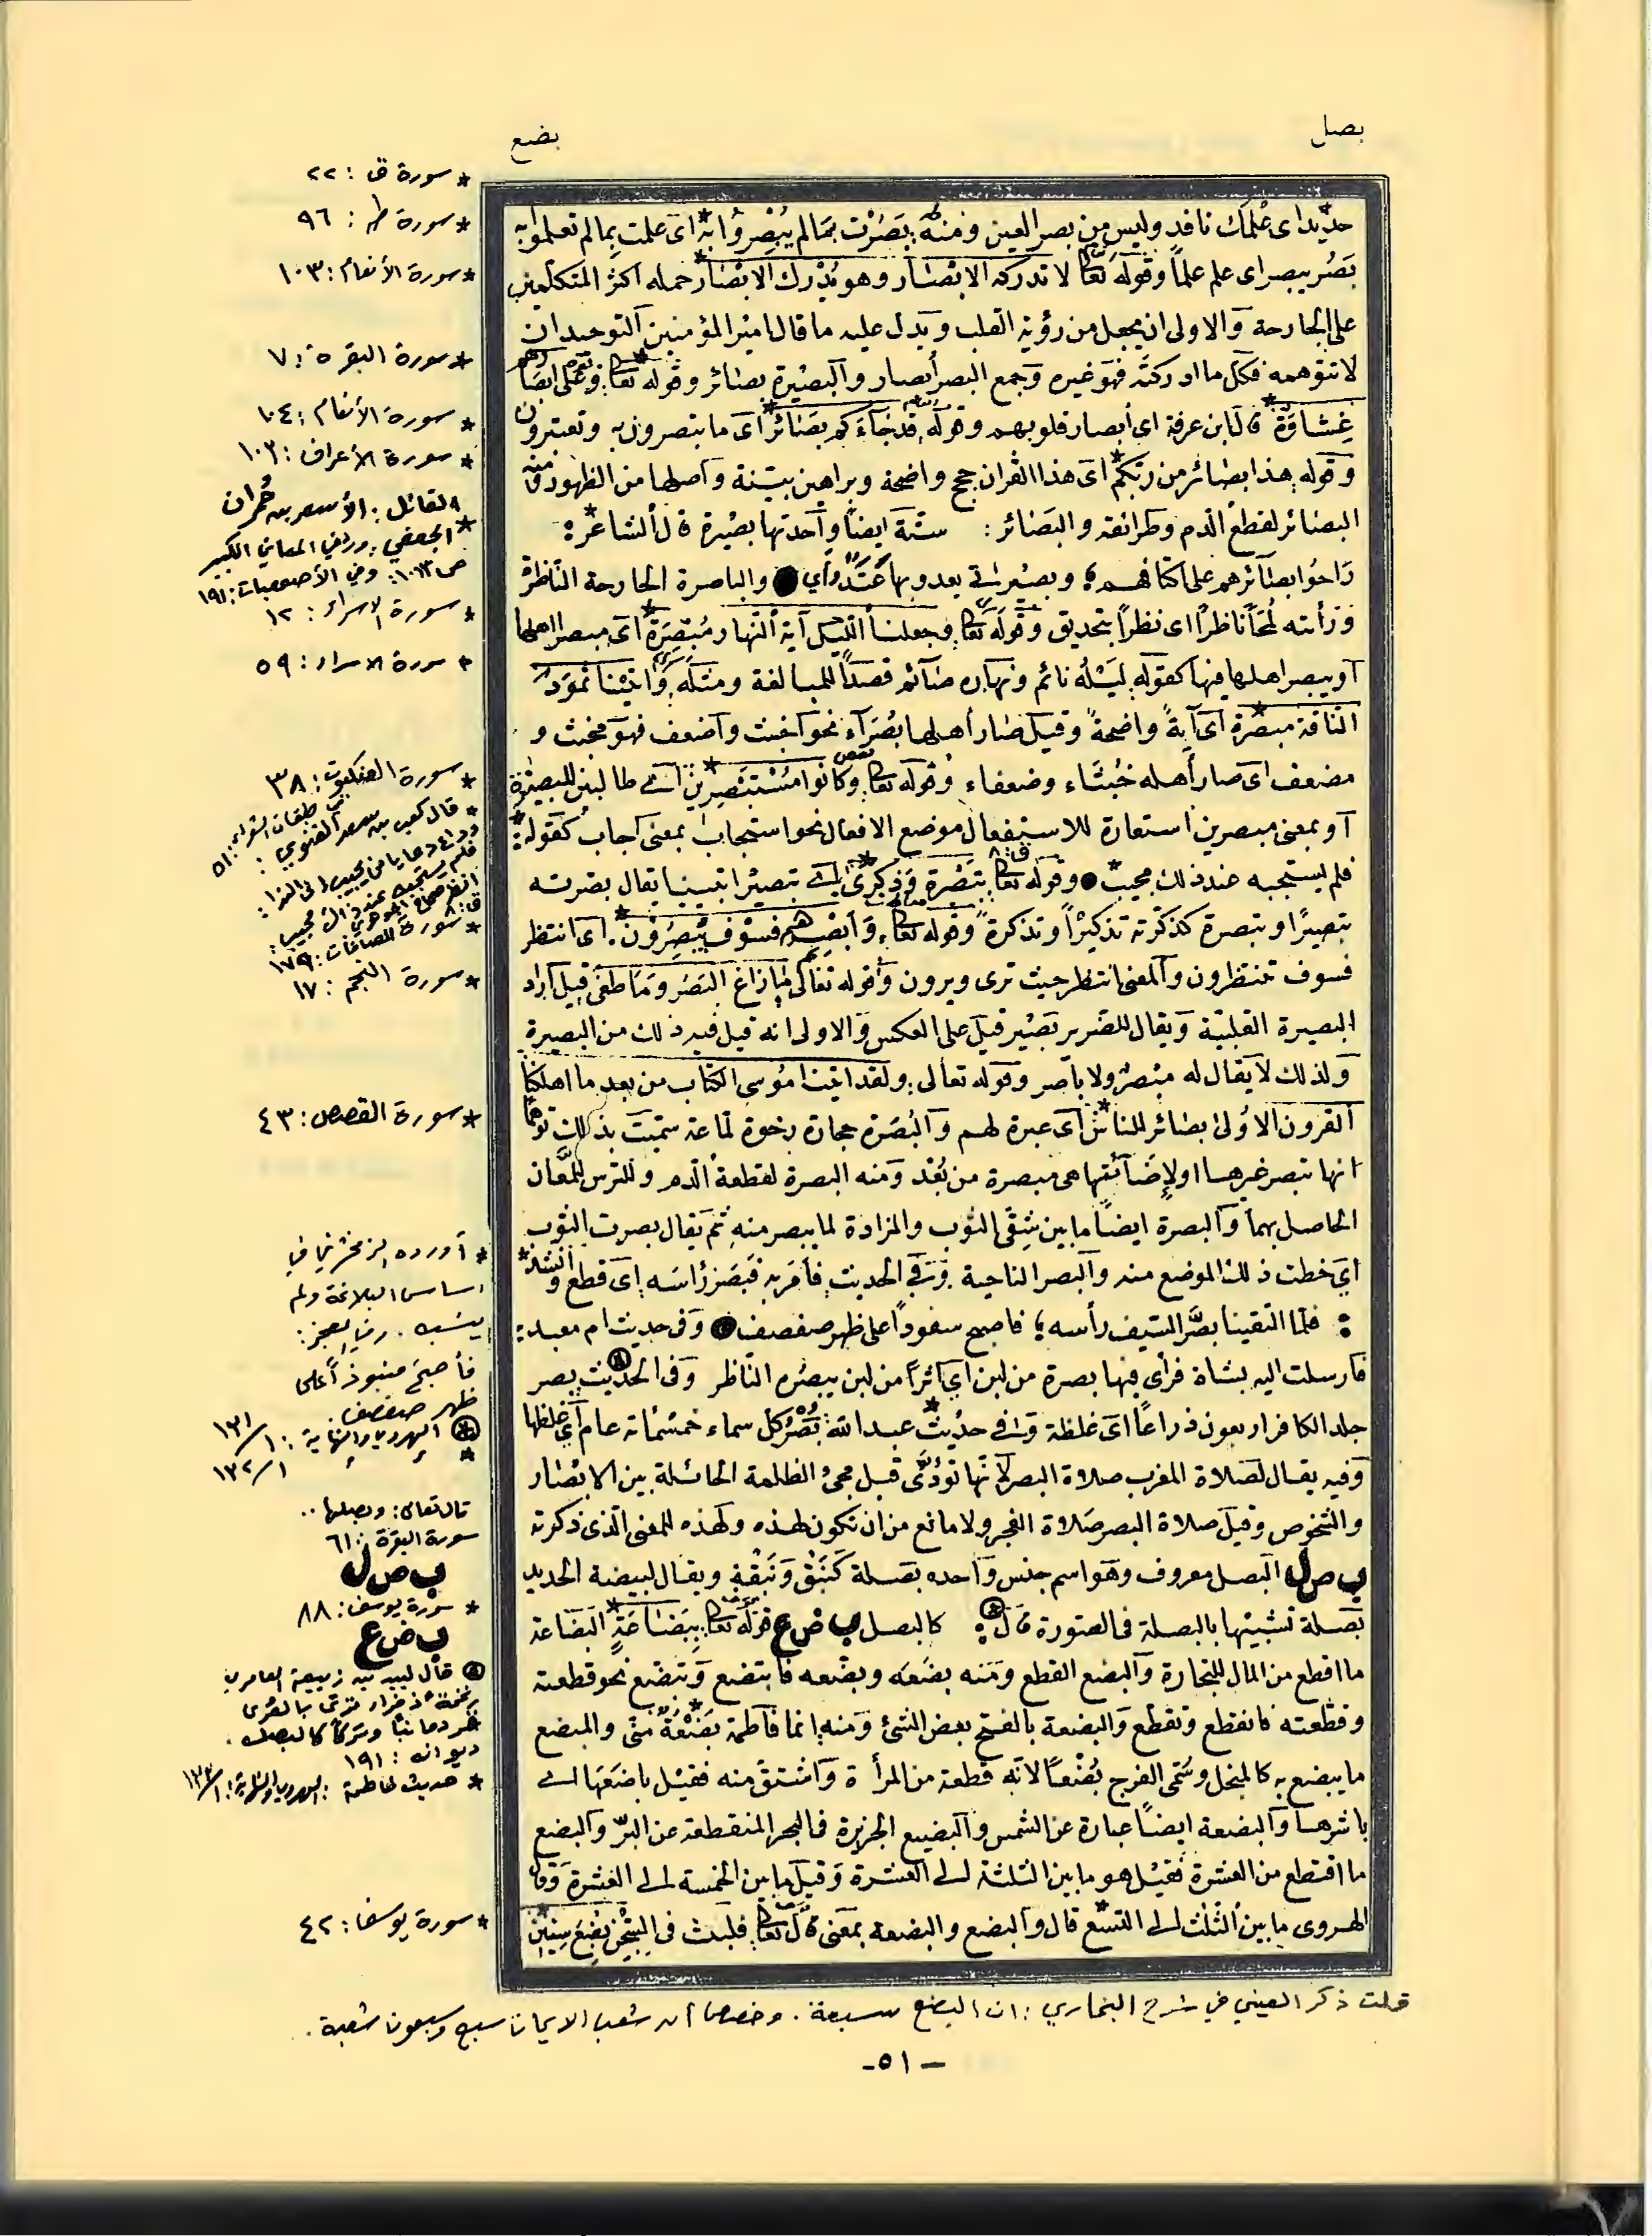 بصل
بضع
حديد اى علمك نافد وليس من بصر العين ومنه بصرت بما لم يبصروا به اى علمت بما لم تعلموا به
بصر يبصر اى علم علماً وقوله تعا لا تدركه الابصار وهو يدرك الابصار حمله اكثر المتكلمين
على الجارحة والاولى ان يجعل من رؤية القلب ويدل عليه ما قال امير المؤمنين التوحيد ان
لا تتوهمه فكل ما ادركته فهو غيره وجمع البصر أبصار والبصيرة بصائر وقوله تعا وعلى ابصارهم
غشاوة قال ابن عرفة اى أبصار قلوبهم وقوله قد جاءكم بصائر اى ما تبصرون به وتعتبرون
وقوله هذا بصائر من ربكم اى هذا القرآن حجج واضحة وبراهين بينة واصلها من الظهور ومنه
البصائر لقطع الدم وطرائقه والبصائر: ستة ايضاً واحدتها بصيرة قال الشاعر:
راحوا بصائرهم على اكتافهم؛ وبصيرتى يعدو بها عتد وأى والباصرة الجارحة الناظرة
ورأيته لمحاً ناظراً اى نظراً بتحديق وقوله تعا وجعلنا الليل آية النهار مبصرة اى مبصر اهلها
او يبصر اهلها فيها كقوله ليله نائم ونهاره صائم قصداً للمبالغة ومثله وآتينا ثمود
الناقة مبصرة اى آيةً واضحةً وقيل صار أهلها بصراء نحو اخبث واضعف فهو مخبث و
مضعف اى صار أهله خبثاء وضعفاء وقوله تعا وكانوا مستبصرين اى طالبين للبصيرة
او بمعنى مبصرين استعارة للاستفعال موضع الافعال نحو استجاب بمعنى اجاب كقوله:
فلم يستجبه عند ذلك مجيب وقوله تعا تبصرة وذكرى اى تبصيرا تبيينا يقال بصرته
تبصيرًا وتبصرة كذكرته تذكيراً وتذكرة وقوله تعا وأبصرهم فسوف يبصرون اى انتظر
فسوف تنتظرون والمعنى انتظر حيث ترى ويرون وقوله تعالى ما زاغ البصر وما طغى قيل اراد
البصيرة القلبية ويقال للضرير بصير قيل على العكس والاولى انه قيل فيه ذلك من البصيرة
ولذلك لا يقال له مبصر ولا باصر وقوله تعالى ولقد اتينا موسى الكتاب من بعد ما اهلكنا
القرون الاولى بصائر للناس اى عبرة لهم والبصرة حجارة رخوة لماعة سميت بذلك توهماً
انها تبصر غيرها او لإضاءتها هى مبصرة من بعد ومنه البصرة لقطعة الدم وللترس للمعان
الحاصل بهما والبصرة ايضاً ما بين شقى الثوب والمزادة لما يبصر منه ثم يقال بصرت الثوب
اى خطت ذلك الموضع منه والبصر الناحية وفى الحديث فأمر به فبصر رأسه اى قطع وأنشد
فلما التقينا بصر السيف رأسه؛ فاصبح سفوداً على ظهر صفصف وفى حديث ام معبد:
فارسلت اليه بشاة فرأى فيها بصرة من لبن اى اثراً من لبن يبصره الناظر وفى الحديث بصر
جلد الكافر اربعون ذراعاً اى غلظة وفى حديث عبد الله بصر كل سماء خمسمائة عام اى غلظها
وفيه يقال لصلاة المغرب صلاة البصر لأنها تؤدى قبل مجئ الظلمة الحائلة بين الابصار
والشخوص وقيل صلاة البصر صلاة الفجر ولا مانع من ان تكون لهذه ولهذه للمعنى الذى ذكرته
ب ص ل البصل معروف وهو اسم جنس واحده بصلة كنبق ونبقة ويقال لبيضة الحديد
بصلة تشبيها بالبصلة فى الصورة قال: كالبصل ب ض ع قوله تعا ببضاعة البضاعة
ما اقطع من المال للتجارة والبضع القطع ومنه بضعه وبضعه فابتضع وتبضع نحو قطعته
وقطعته فانقطع وتقطع والبضعة بالفتح بعض الشئ ومنه انما فاطمة بضعة منى والمبضع
ما يبضع به كالمنجل وسمى الفرج بضعاً لانه قطعة من المرأة واشتق منه فقيل باضعها اى
باشرها والبضعة ايضاً عبارة عن الشمس والبضيع الجزيرة فى البحر المنقطعة عن البر والبضع
ما اقتطع من العشرة فقيل هو ما بين الثلثة الى العشرة وقيل ما بين الخمسة الى العشرة وقال
الهروى ما بين الثلث الى التسع قال والبضع والبضعة بمعنى قال تعا فلبث فى السجن بضع سنين
* سورة ق : ٢٢
* سورة طه : ٩٦
* سورة الأنعام : ١٠٣
* سورة البقرة : ٧
* سورة الأنعام : ١٠٤
* سورة الأعراف : ١٠٢
القائل : الأسعر بن حمران
* الجعفي : ورد في المعاني الكبير
ص ١٠١٣ : وفي الأصمعيات : ١٩١
* سورة الإسراء : ١٢
* سورة الإسراء : ٥٩
* سورة العنكبوت : ٣٨
* قال كعب بن سعد الغنوي :
وداع دعا يا من يجيب إلى الندا :
فلم يستجبه عند ذاك مجيب :
ق : ٨
* سورة الصافات : ١٧٩
* سورة النجم : ١٧
* سورة القصص : ٤٣
* أورده الزمخشري في
اساس البلاغة ولم
ينسبه . وفيه عجز :
فأصبح منبوذاً على
ظهر صفصف .
الهروي والنهاية : ١/١٣١
* ١/١٣٢
قال تعالى : وبصلها ..
سورة البقرة : ٦١
ب ص ل
* سورة يوسف : ٨٨
ب ض ع
قال لبيد بن ربيعة العامري
فخمة ذفراء ترتى بالعُرى
قردمانيًا وتركاً كالبصل .
ديوانه : ١٩١
* حديث فاطمة : الهروي والنهاية : ١/١٣٣
* سورة يوسف : ٤٢
قلت ذكر العيني في شرح البخاري : ان البضع سبعة . وخصصها أن شعب الايمان سبع وسبعون شعبة .
- ٥١ -